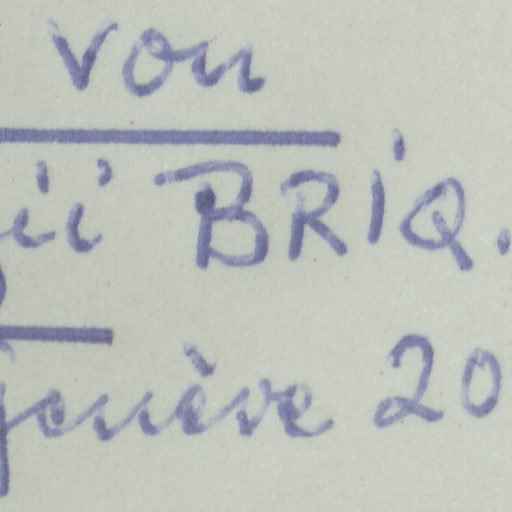 von
ii BRIQ.
genève 20